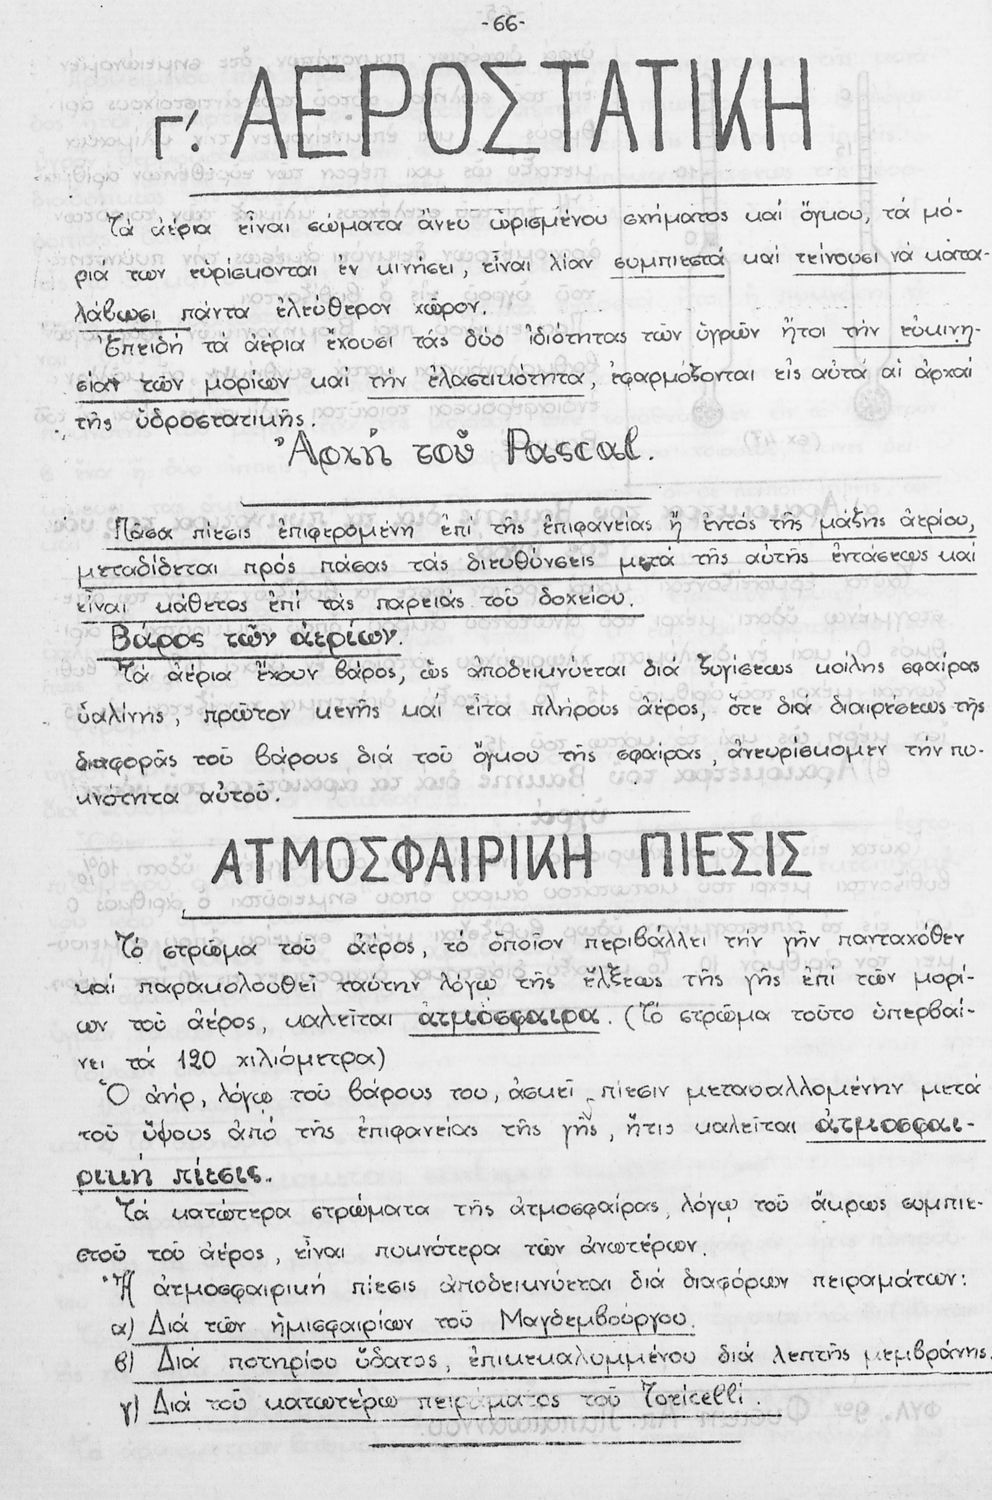 -66-
Γ'. ΑΕΡΟΣΤΑΤΙΚΗ
Τά ἀέρια εἶναι σώματα ἄνευ ὡρισμένου σχήματος καί ὄγκου, τά μό-
ρια των εὑρίσκονται ἐν κινήσει, εἶναι λίαν συμπιεστά καί τείνουσι νά κατα-
λάβωσι πάντα ἐλεύθερον χῶρον.
Ἐπειδή τά ἀέρια ἔχουσι τάς δύο ἰδιότητας τῶν ὑγρῶν ἤτοι τήν εὐκινη-
σίαν τῶν μορίων καί τήν ἐλαστικότητα, ἐφαρμόζονται εἰς αὐτά αἱ ἀρχαί
τῆς ὑδροστατικῆς.
Ἀρχή τοῦ Pascal.
Πᾶσα πίεσις ἐπιφερομένη ἐπί τῆς ἐπιφανείας ἤ ἐντός τῆς μάζης ἀερίου,
μεταδίδεται πρός πάσας τάς διευθύνσεις μετά τῆς αὐτῆς ἐντάσεως καί
εἶναι κάθετος ἐπί τάς παρειάς τοῦ δοχείου.
Βάρος τῶν ἀερίων.
Τά ἀέρια ἔχουν βάρος, ὡς ἀποδεικνύεται διά ζυγίσεως κοίλης σφαίρας
ὑαλίνης, πρῶτον κενῆς καί εἶτα πλήρους ἀέρος, ὅτε διά διαιρέσεως τῆς
διαφορᾶς τοῦ βάρους διά τοῦ ὄγκου τῆς σφαίρας, ἀνευρίσκομεν τήν πυ-
κνότητα αὐτοῦ.
ΑΤΜΟΣΦΑΙΡΙΚΗ ΠΙΕΣΙΣ
Τό στρῶμα τοῦ ἀέρος, τό ὁποῖον περιβάλλει τήν γῆν πανταχόθεν
καί παρακολουθεῖ ταύτην λόγῳ τῆς ἕλξεως τῆς γῆς ἐπί τῶν μορί-
ων τοῦ ἀέρος, καλεῖται ἀτμόσφαιρα. (Τό στρῶμα τοῦτο ὑπερβαί-
νει τά 120 χιλιόμετρα)
Ὁ ἀήρ, λόγῳ τοῦ βάρους του, ἀσκεῖ πίεσιν μεταβαλλομένην μετά
τοῦ ὕψους ἀπό τῆς ἐπιφανείας τῆς γῆς, ἥτις καλεῖται ἀτμοσφαι-
ρική πίεσις.
Τά κατώτερα στρώματα τῆς ἀτμοσφαίρας, λόγῳ τοῦ ἄκρως συμπιε-
στοῦ τοῦ ἀέρος, εἶναι πυκνότερα τῶν ἀνωτέρων.
Ἡ ἀτμοσφαιρική πίεσις ἀποδεικνύεται διά διαφόρων πειραμάτων:
α) Διά τῶν ἡμισφαιρίων τοῦ Μαγδεμβούργου.
β) Διά ποτηρίου ὕδατος, ἐπικεκαλυμμένου διά λεπτῆς μεμβράνης.
γ) Διά τοῦ κατωτέρω πειράματος τοῦ Toricelli.